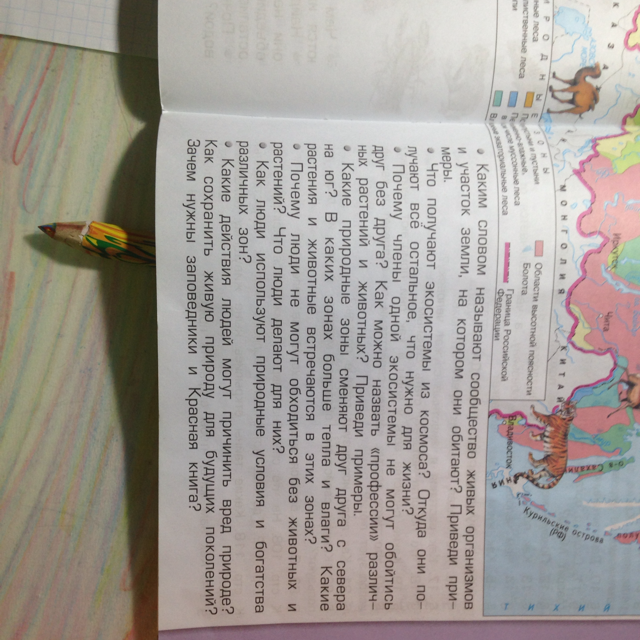 П Р И Р О Д Н Ы Е З О Н Ы
лиственные леса
Пустыни и полупустыни
Области высотной поясности
Болота
Граница Российской
Федерации
К А З А
М О Н Г О Л И Я
К И Т А Й
Иркутск
Чита
Владивосток
о-в Сахалин
Курильские острова
(РФ)
Т И Х И Й
• Каким словом называют сообщество живых организмов
и участок земли, на котором они обитают? Приведи при-
меры.
• Что получают экосистемы из космоса? Откуда они по-
лучают всё остальное, что нужно для жизни?
• Почему члены одной экосистемы не могут обойтись
друг без друга? Как можно назвать «профессии» различ-
ных растений и животных? Приведи примеры.
• Какие природные зоны сменяют друг друга с севера
на юг? В каких зонах больше тепла и влаги? Какие
растения и животные встречаются в этих зонах?
• Почему люди не могут обходиться без животных и
растений? Что люди делают для них?
• Как люди используют природные условия и богатства
различных зон?
• Какие действия людей могут причинить вред природе?
Как сохранить живую природу для будущих поколений?
Зачем нужны заповедники и Красная книга?